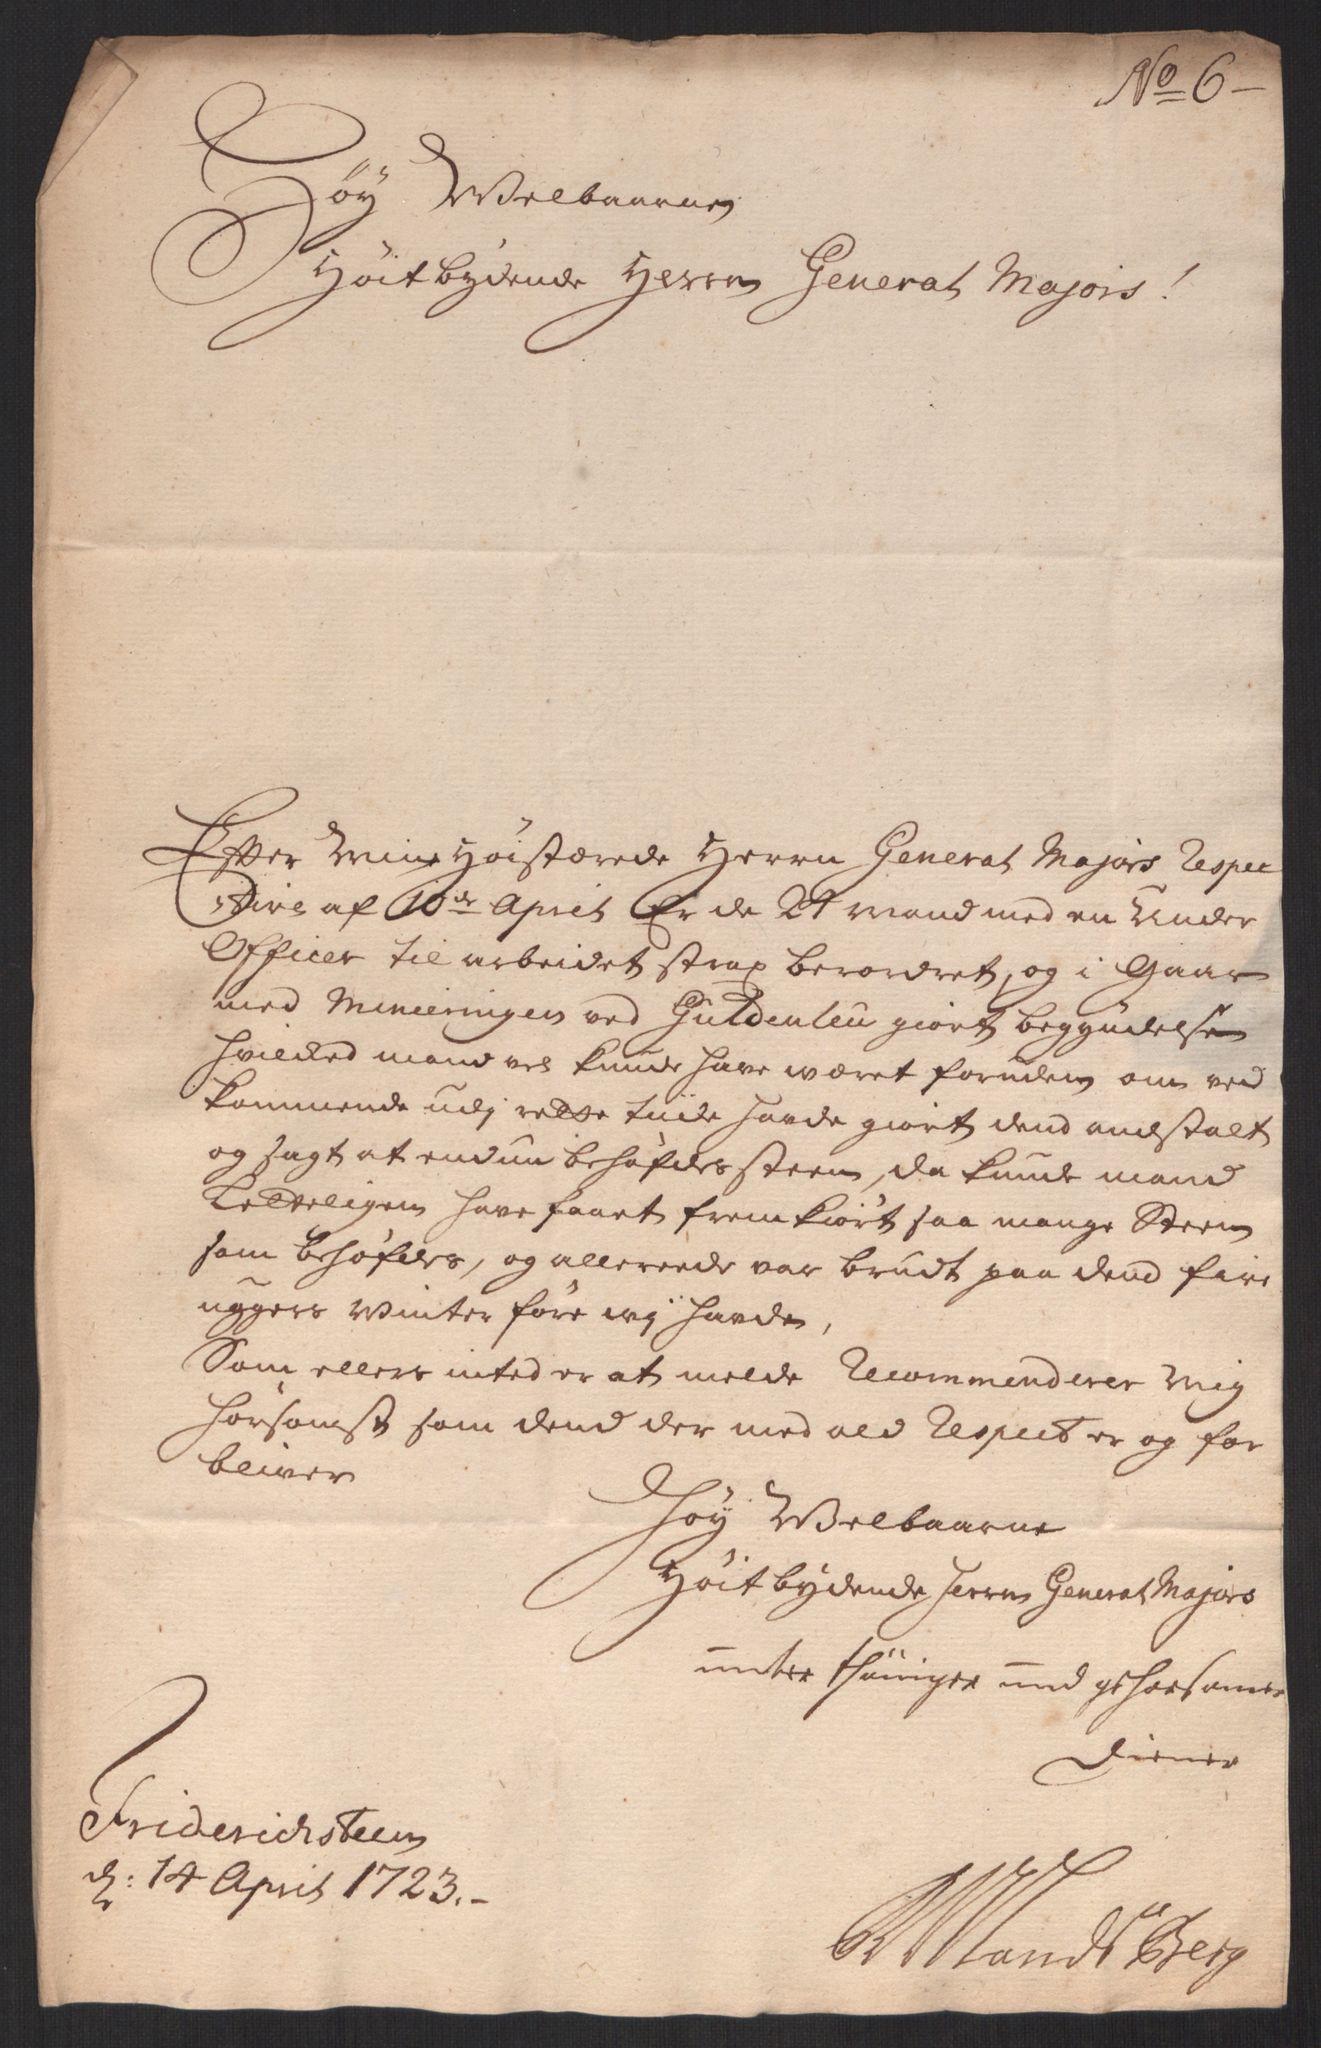 No 6
Høy Welbaarne
Høitbydende Herrn General Majors!
Efter Min Høistærede Herrn General Majors Respec
tive af 10de April Er de 24 Mand med en Under
Officer til arbeidet strax beordret, og i Gaar
med Mineeringen ved Guldenleu giort begyndelse
hvilcked mand vel kunde have wæret foruden om ved
kommende udj rette tiide havde giort dend andstalt
og sagt at endnu behøfdes steen, da kunde mand
Letteligen have faaet fremkiørt saa mange Steen
som behøfdes, og allereede var brudt paa dend fiire
uggers Winter føre wj havde,
Som ellers inted er at melde Recommenderer Mig
hørsomst som dend der med ald Respect er og for
bliver
Høy Welbaarne
Høitbydende Herrn General Majors
unter thäniger und gehorsamer
Diener
Friderichsteen
d: 14 April 1723.
Landsberg